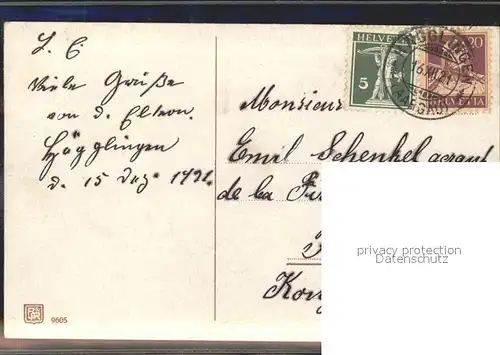 L. E.
Viele Grüße
von d. Eltern.
Hägglingen
d. 15 Dez. 1921.
HELVETIA
5
20
HELVETIA
HÄGGLINGEN
16.XII.21
(AARGAU)
Monsieur
Emil Schenkel gerant
de la
privacy protection
Datenschutz
9605